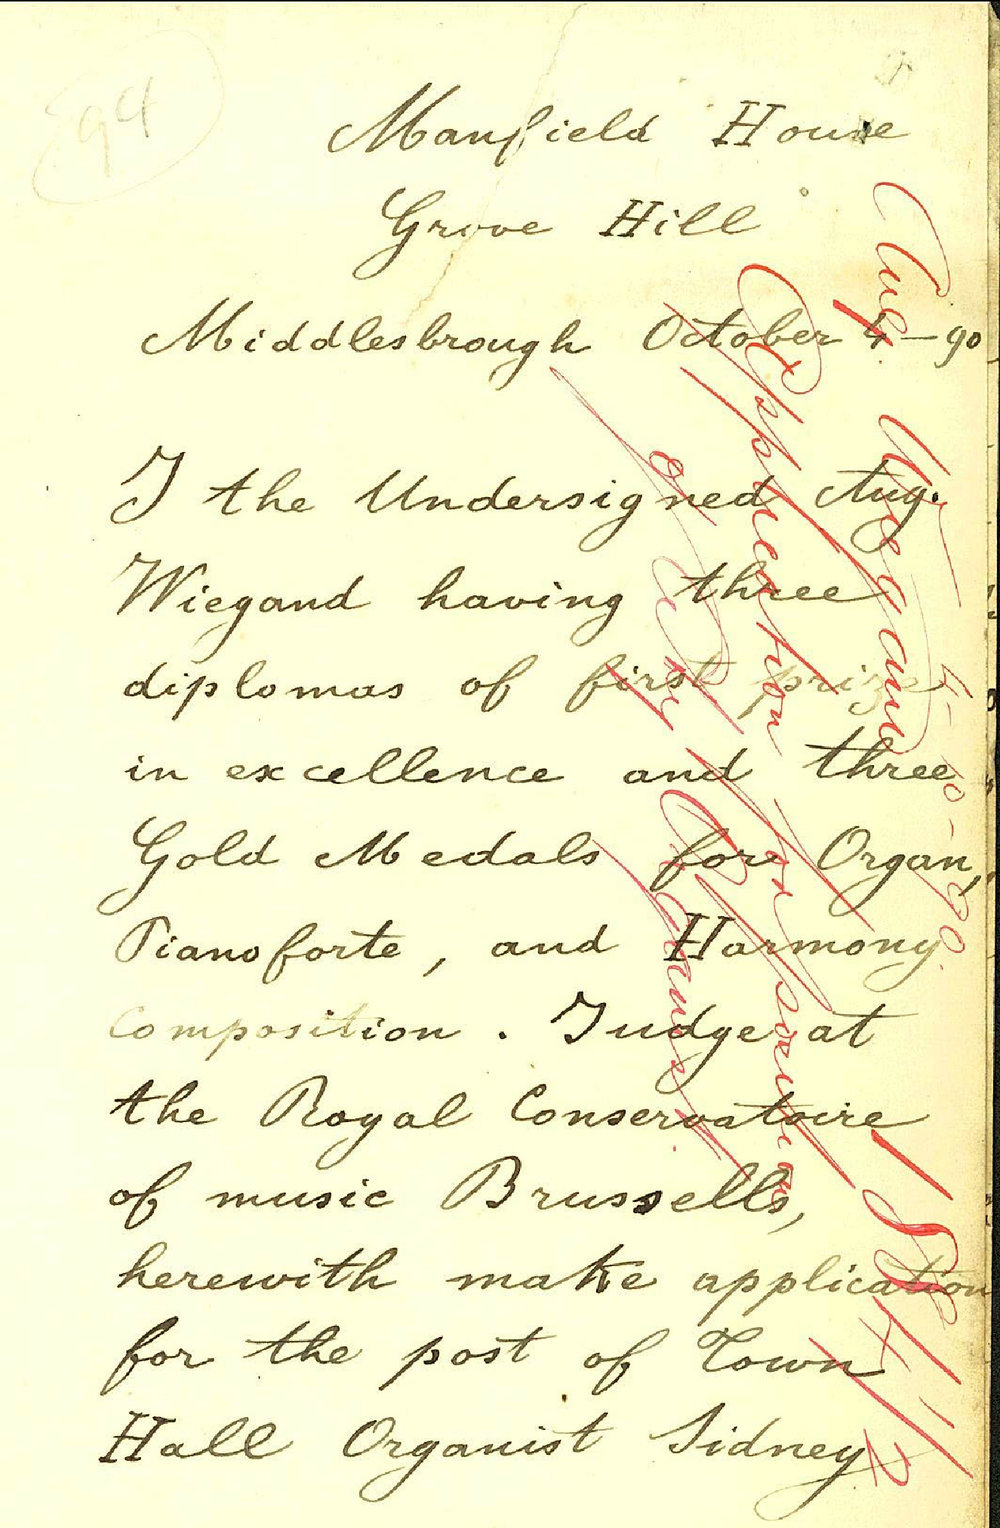 94
Manfield House
Grove Hill
Middlesbrough October 4 – 90
I the Undersigned Aug.
Wiegand having three
diplomas of first prize
in excellence and three
Gold Medals for Organ,
Pianoforte, and Harmony
Composition. Judge at
the Royal Conservatoire
of music Brussells,
herewith make application
for the post of Town
Hall Organist Sidney
Aug. Wiegand
4-10-90.
Application for position
of City Organist
1844/2